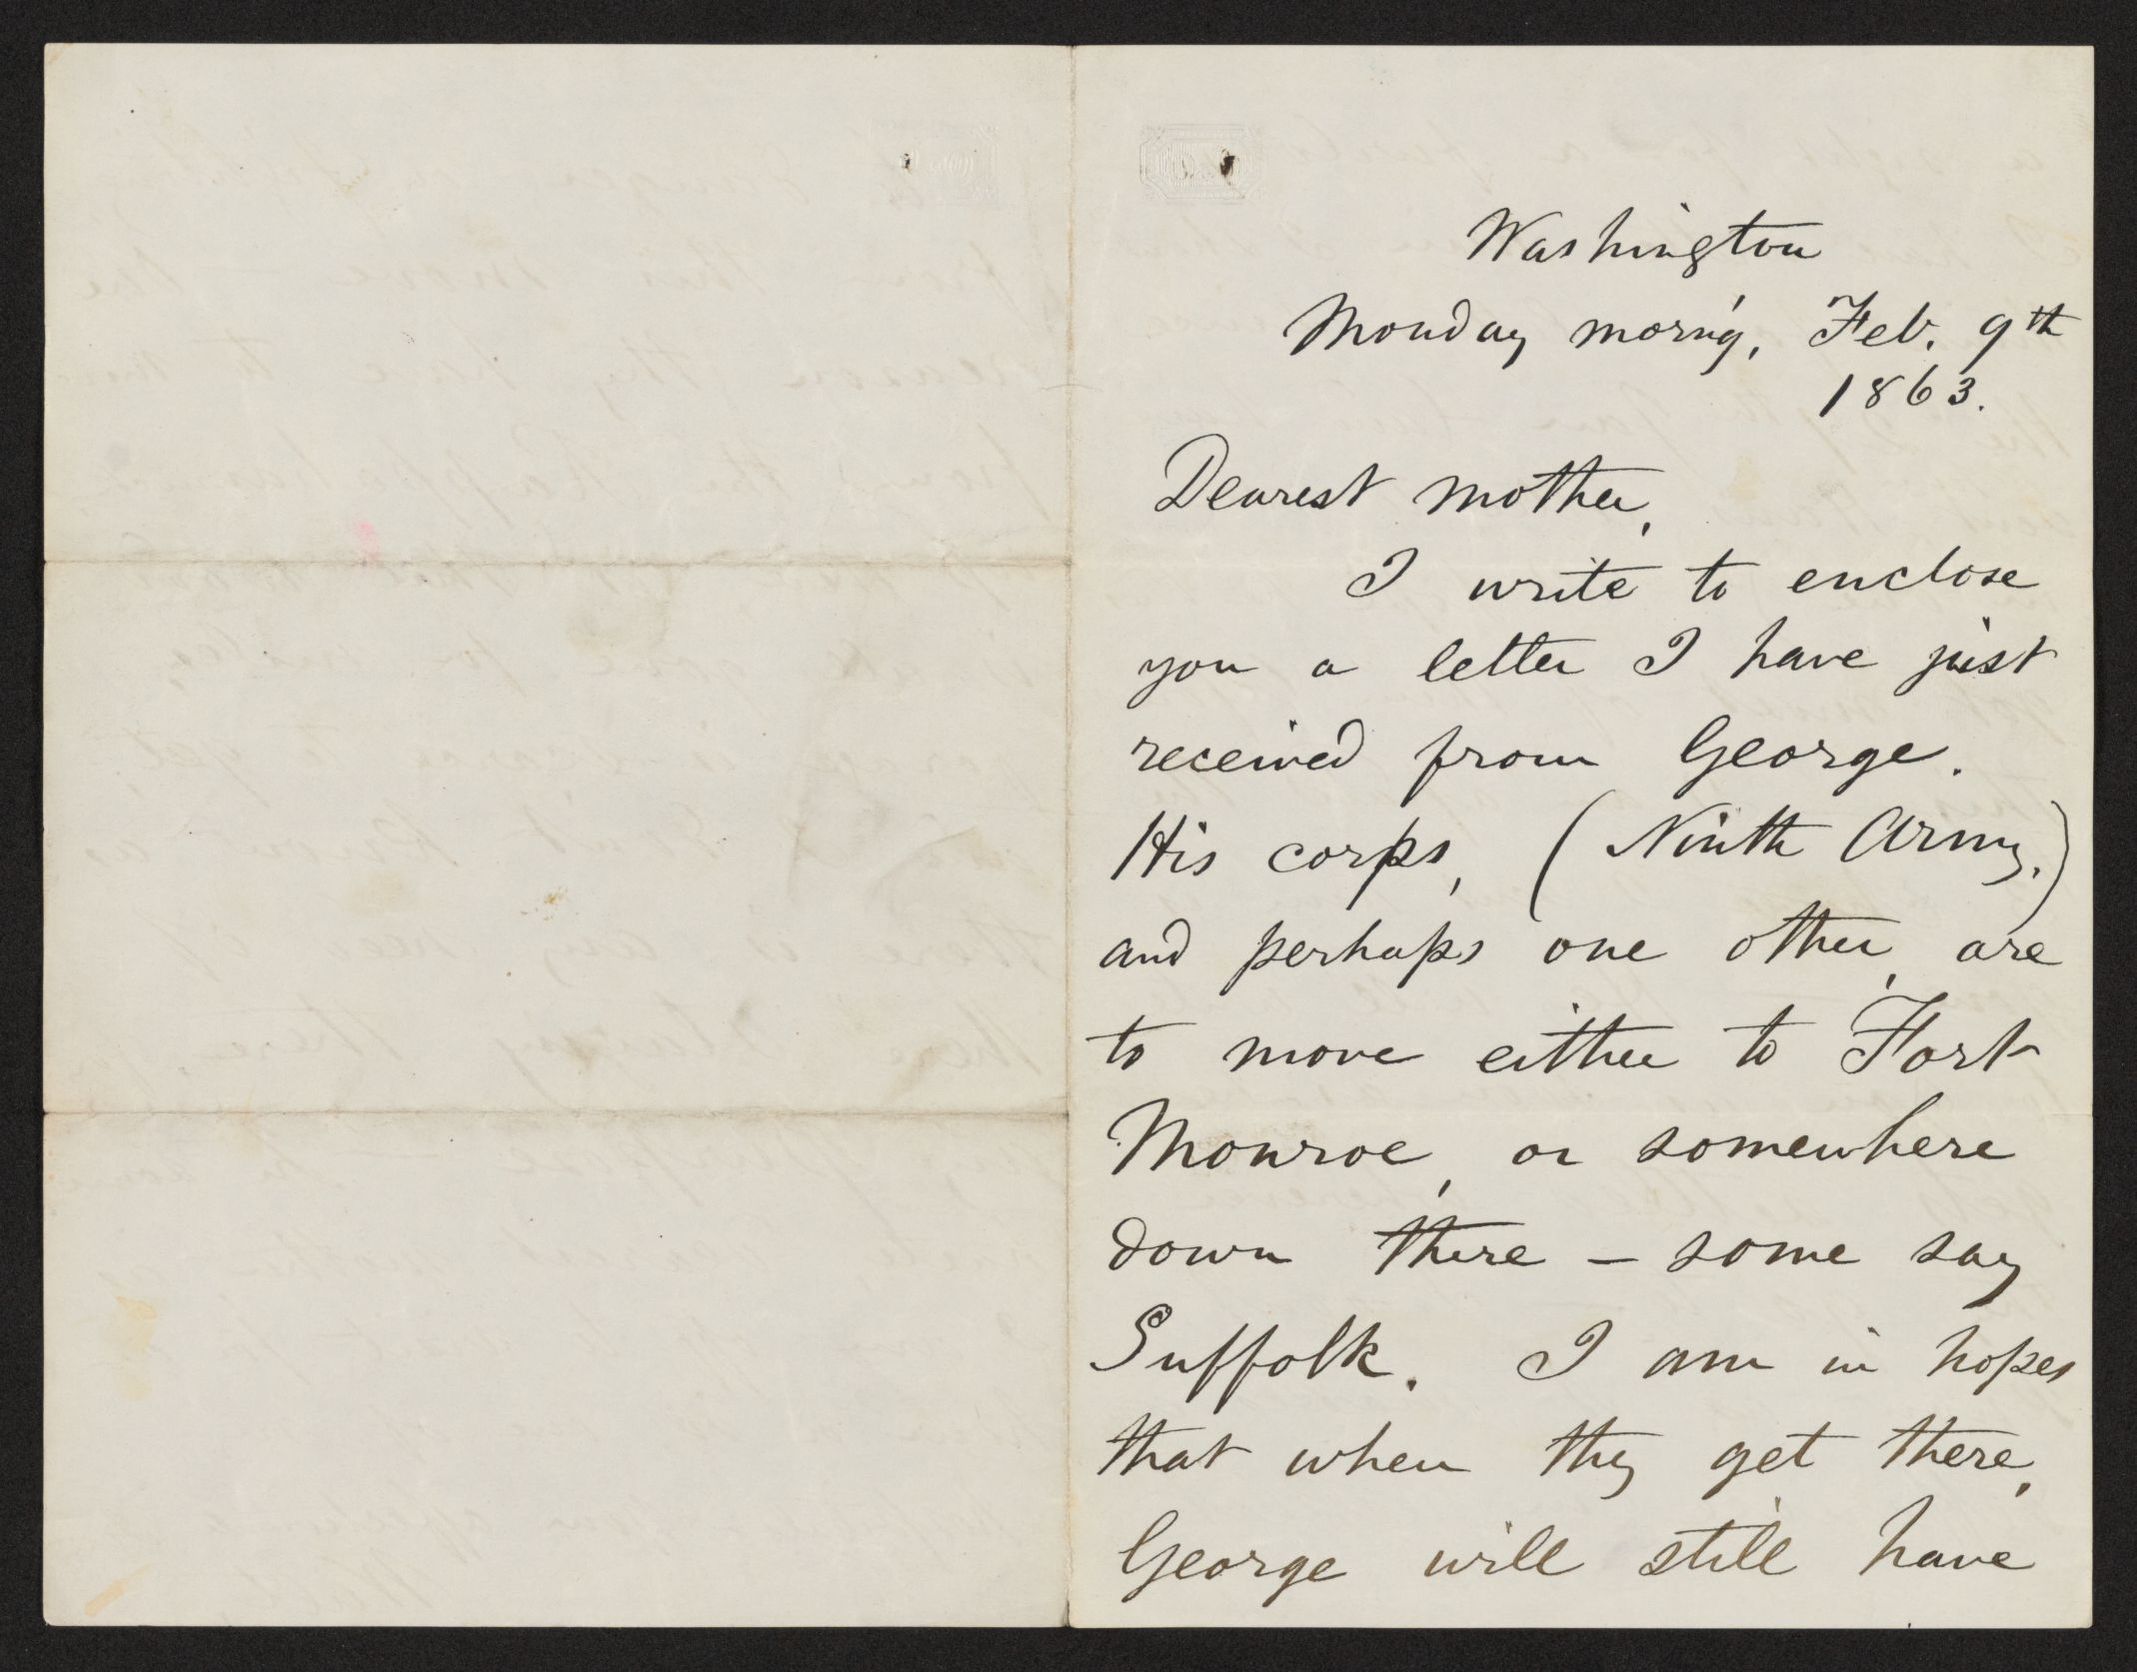 Washington
Monday morn'g, Feb. 9th
1863.
Dearest mother,
I write to enclose
you a letter I have just
received from George.
His corps, (Ninth Army.)
and perhaps one other, are
to move either to Fort
Monroe, or somewhere
down there – some say
Suffolk. I am in hopes
that when they get there,
George will still have